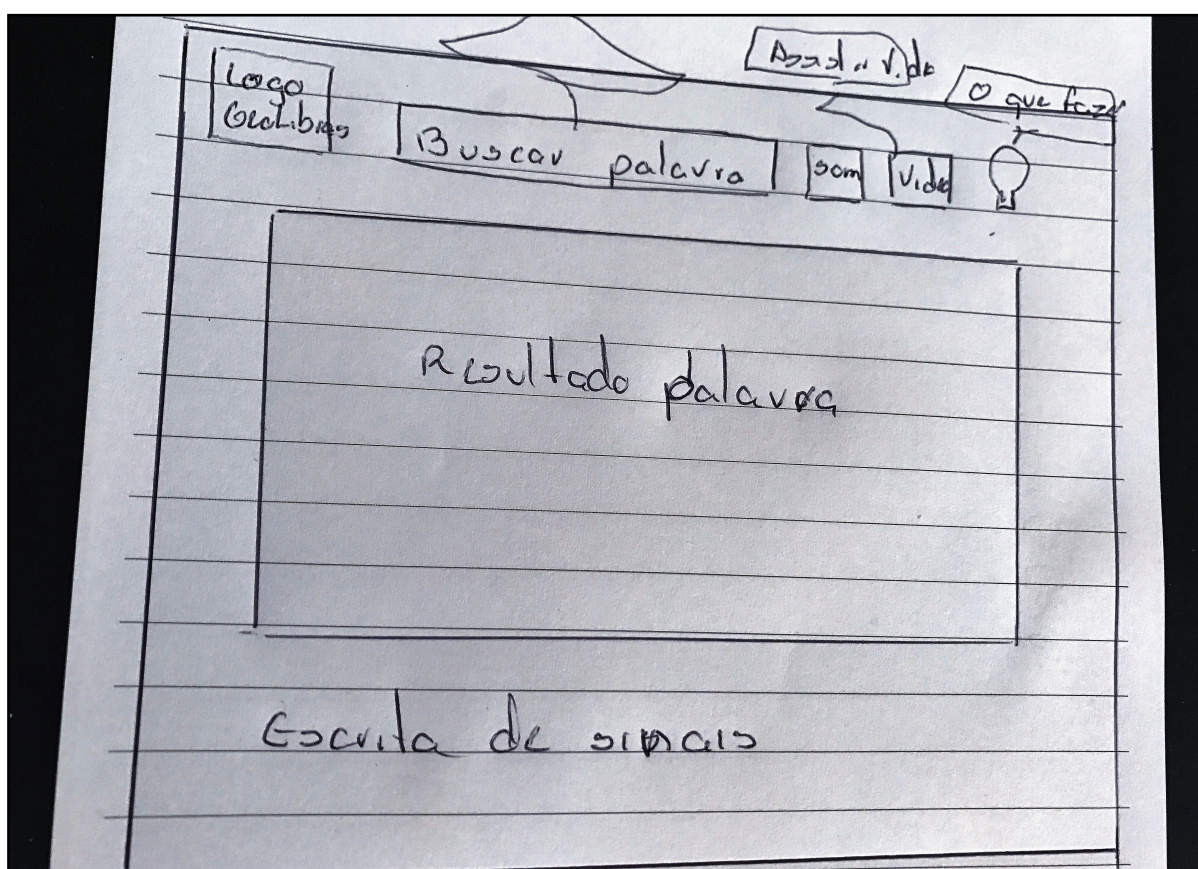 O que fazer
Logo
GeoLibras
Buscar palavra
som
Video
Resultado palavra
Escrita de sinais